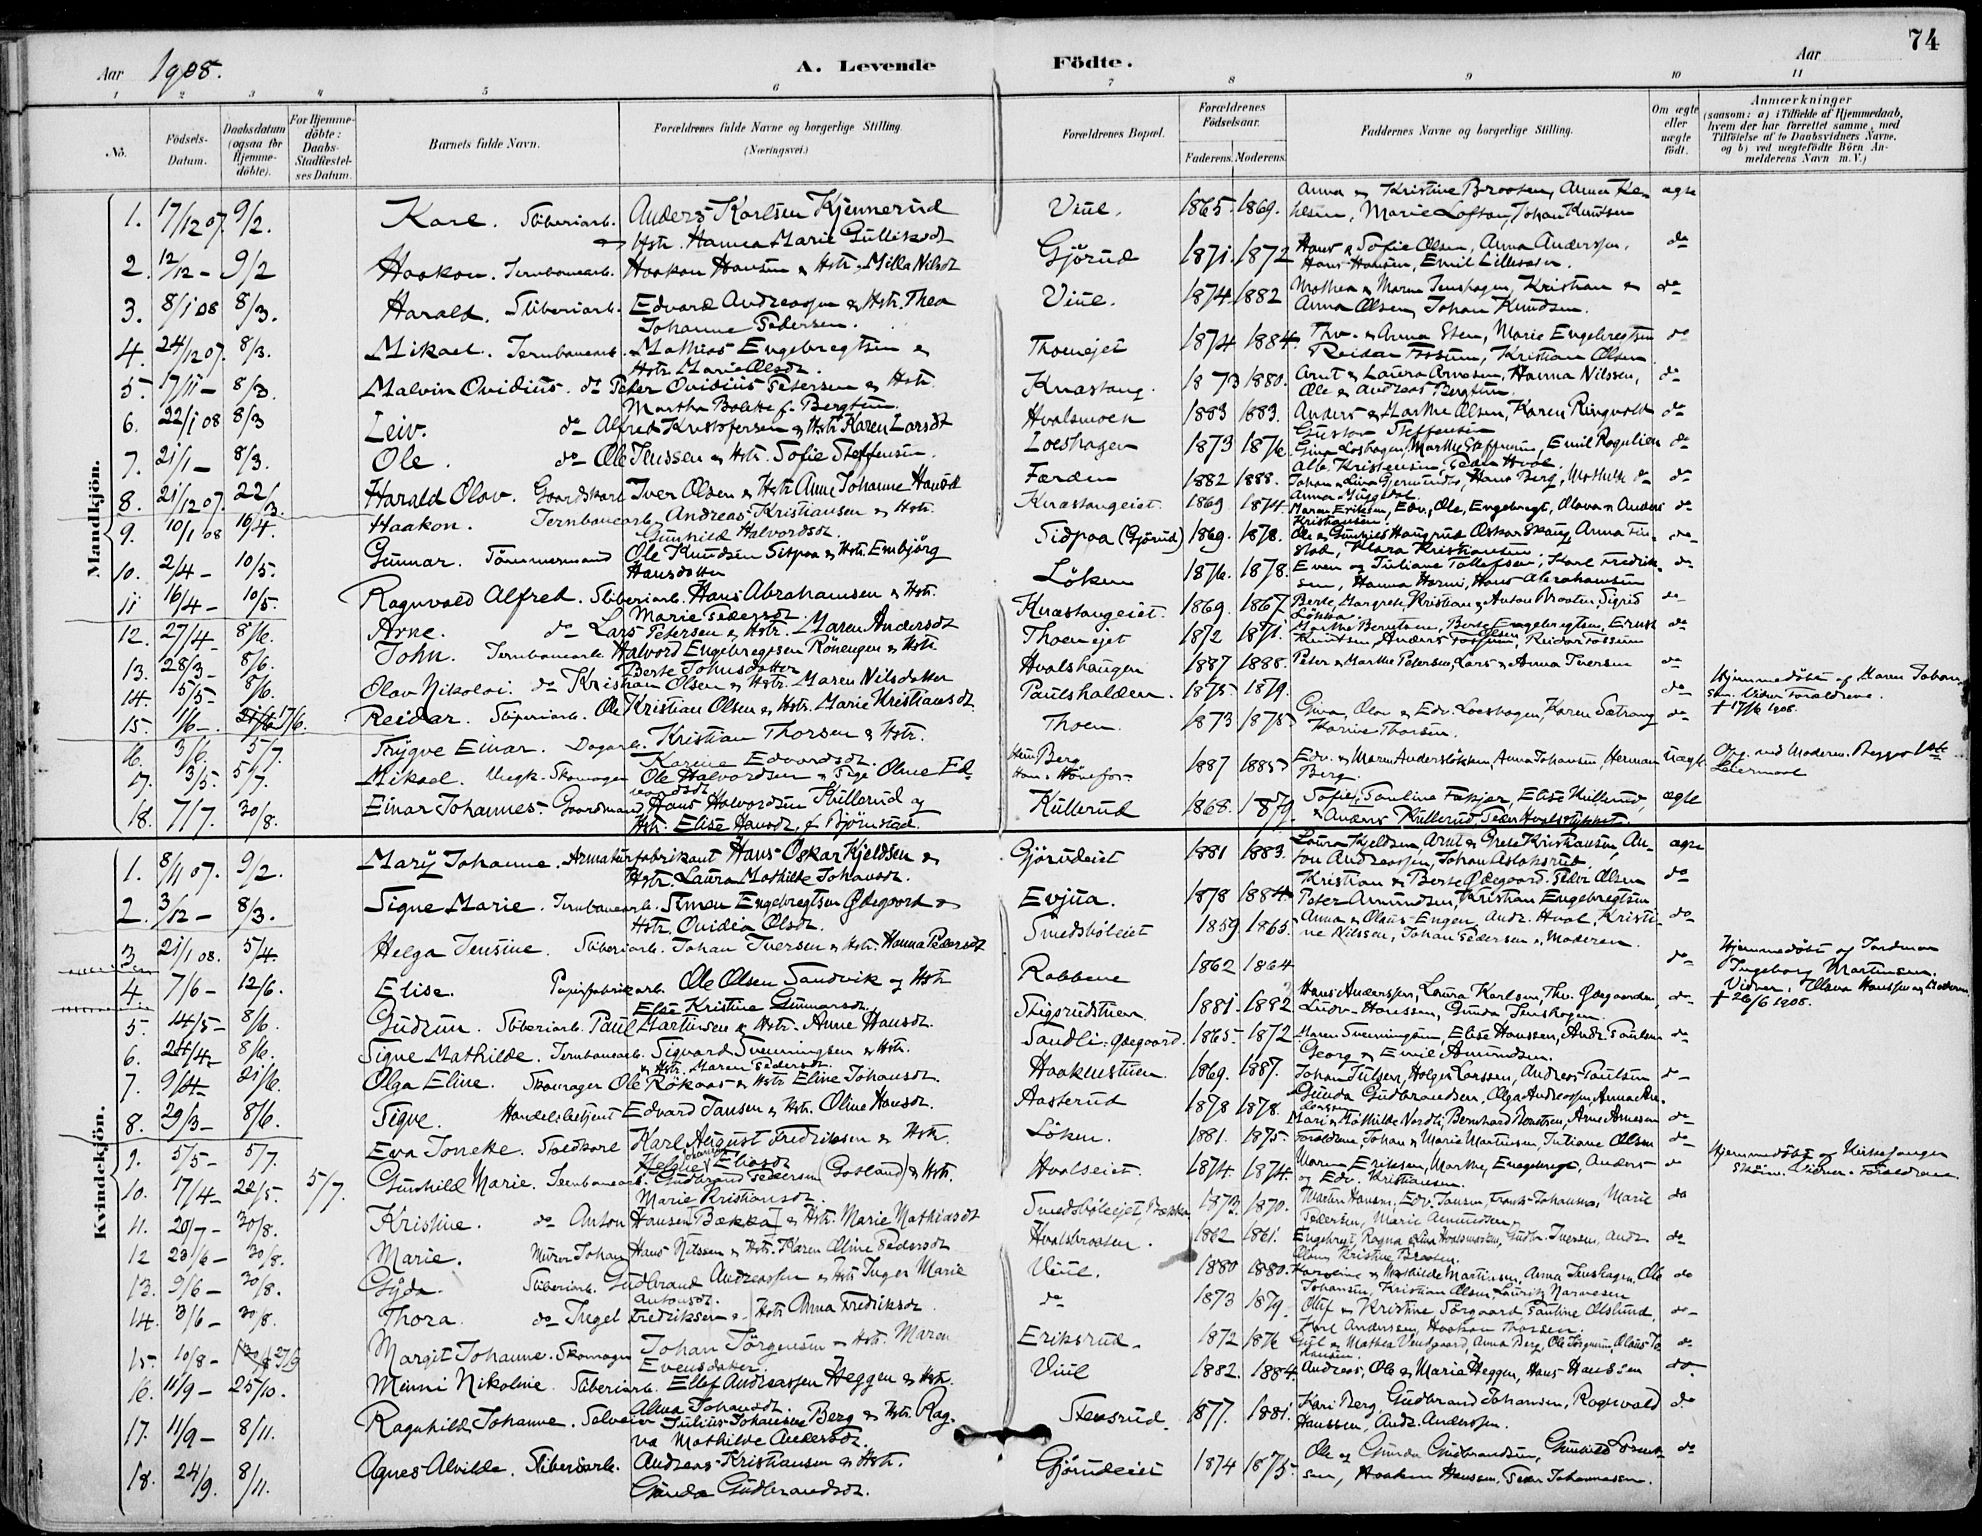 74
Aar 1908.
A. Levende Födte.
Aar
1 2 3 4 5 6 7 8 9 10 11
No.
Födsels-Datum.
Daabsdatum (ogsaa for Hjemme-döbte).
For Hjemme-döbte: Daabs-Stadfæstel-ses Datum.
Barnets fulde Navn.
Forældrenes fulde Navne og borgerlige Stilling. (Næringsvei.)
Forældrenes Bopæl.
Forældrenes Födselsaar.
Faderens. Moderens.
Faddernes Navne og borgerlige Stilling.
Om ægte eller uægte födt.
Anmærkninger (saasom: a) i Tilfælde af Hjemmedaab, hvem der har forrettet samme, med Tilföielse af to Daabsvidners Navne. og b) ved uægtefödte Börn An-melderens Navn m. V.)
Mandkjön.
1. 17/12 07. 9/2. Kare. Sliberiarb. Anders Karlsen Kjennerud Hstr. Hanna Marie Gulliksdt Viul. 1865. 1869. Anna & Kristine Braaten, Marie Loftan, Johan Knudsen ægte
2. 12/12 - 9/2 Haakon. Jernbanearb. Haakon Hansen & Hstr. Milla Nilsdt Gjörud 1871. 1872 Hans & Sofie Olsen, Anna Anderssen, Hans Hansen, Emil do
3. 8/1 08 8/3. Harald. Sliberiarb. Edvard Andreassen & Hstr. Thea Johanne Pedersen. Viul. 1874. 1882 Mathea & Maren Jenshagen, Kristian & Anna Olsen, Johan Knudsen. do
4. 24/12 07. 8/3. Mikael. Jernbanearb. Mathias Engebregtsen & Hstr. Marie Olsdt. Thoenejet 1874 1884. Thv. & Anna Sten, Marie Engebregtsen Reidar Fossum, Kristian Olsen do
5. 17/11 - 8/3. Malvin Ovidius. do Peter Ovidius Petersen & Hstr. Martha Bolette f. Bergsten. Knastang. 1873 1880. Arnt & Laura Arnesen, Hanna Nilssen, Ole & Andreas Bergsten. do
6. 22/1 08 8/3 Leiv. do Alfred Kristofersen & Hstr. Karen Larsdt Hvalsmoen 1883 1883. Anders & Marthe Olsen, Karen Ringvold Gustav Steffensen do
7. 21/1 - 8/3. Ole. do Ole Jenssen & Hstr. Sofie Steffensen. Loeshagen 1873 1876 Gina Loshagen, Marthe Steffensen, Emil Rognlien Alb. Kristensen, Peder Hval. do
8. 21/12 07. 22/3. Harald Olav. Gaardskarl Iver Olsen & Hstr. Anne Johanne Hansdt Færden 1882 1888. Hans Berg, do
9. 10/1 08 16/4. Haakon. Jernbanearb. Andreas Kristiansen & Hstr. Gunhild Halvordsdt. Knastangeiet. 1869 1874. Maren Eriksen, Edv., Ole, Engebregt, Olava & Anders Kristiansen. do
10. 2/4 - 10/5. Gunnar. Tömmermand Ole Knudsen Sidpaa & Hstr. Embjörg Hansdatter Sidpaa (Gjörud) 1869. 1878. Ole & Gunhild Haugrud, Oskar Skaug, Anna Klara Kristiansen do
11 16/4 - 10/5. Ragnvald Alfred. Sliberiarb. Hans Abrahamsen & Hstr. Marie Pedersdt. Löken 1876. 1878. Even og Juliane Tollefsen, Karl Fredriksen, Hanna Hans Abrahamsen do
12. 27/4 - 8/6. Arne. do Lars Petersen & Hstr. Maren Andersdt Knastangeiet. 1869. 1867. Berte, Margrete, Kristian & Anton Braaten, Sigrid Lökka. do
13. 28/3 - 8/6. John. Jernbanearb. Halvord Engebregtsen Rönengen & Hstr. Berte Johnsdatter Thoenejet 1872 1871. Marthe Berntsen, Berte Engebregtsen, Ernst Knudsen, Anders Olsen, Reidar Fossum do
14. 15/5 - 8/6. Olav Nikolai. do Kristian Olsen & Hstr. Maren Nilsdatter Hvalshaugen 1887 1888. Peter & Marthe Petersen, Lars & Anna Iversen do
15. 1/6 - 21/6 17/6. Reidar. Sliperiarb. Ole Kristian Olsen & Hstr. Marie Kristiansdt. Paulshalden. 1875 1879. do Hjemmedöbt af Maren Johansen. Vidner Forældrene. † 17/6 1908.
16. 3/6. 5/7. Trygve Einar. Dagarb. Kristian Thorsen & Hstr. Karine Edvardsdt. Thoen 1873 1875 Gina, Olav & Edv. Loeshagen, Karen Sætrang Karine Thorsen. do
17. 3/5. 5/7. Mikael. Ungk. Skomager Ole Halvordsen & Pige Oline Edvardsdt Hun Berg Han Hönefos 1887 1885 Edv. & Maren Anderslökken, Anna Johansen, Herman Berg. Uægte
18. 7/7. 30/8. Einar Johannes. Gaardmand Hans Halvordsen Kullerud og Hstr. Elise Hansdt. f. Bjørnstad. Kullerud 1868. 1879. Sofie, Pauline Elise Kullerud, & Anders Kullerud, Peder Hvalsstykket. ægte
Kvindekjön.
1. 8/11 07. 9/2. Mary Johanne. Armaturfabrikant Hans Oskar Kjeldsen & Hstr. Laura Mathilde Johansdt. Gjörudeiet 1881 1883. Laura Kjeldsen, Arnt & Grete Kristiansen, Anton Andreassen, Johan Aslaksrud ægte
2. 3/12 - 8/3. Signe Marie. Jernbanearb. Simen Engebregtsen Ødegaard & Hstr. Ovidia Olsdt. Evjua. 1878 1884. Kristian & Berte Ødegaard. Peder Olsen Peter Amundsen, Kristian Engebregtsen do
3 21/1 08. 5/4. Helga Jensine. Sliberiarb. Johan Iversen & Hstr. Hanna Pedersdt Smedsböleiet 1859 1865. Anna & Olaus Engen, Andr. Hval, Kristine Nilssen, Johan Pedersen & Moderen. do
4 7/6 - 12/6. Elise. Papirfabrikarb. Ole Olsen Sandvik og Hstr Else Kristine Gunnarsdt. Rabbene 1862 1864 do Hjemmedöbt af Jordmor Ingeborg Martinsen. Vidner. Olava Hanssen og Moderen. † 26/6 1908.
5. 14/5 - 8/6. Gudrun. Sliberiarb. Paul Martinsen & Hstr. Anne Hansdt. Stigsrudstuen 1881. 1882 Hans Anderssen, Laura Karlsen, Thv. Ødegaarden, Ludv. Hanssen, Gunda Jenshagen. do
6. 24/4 - 8/6. Signe Mathilde. Jernbanearb. Sigvard Svenningsen & Hstr. & Hstr. Maren Pedersdt. Sandli. Ødegaard. 1865. 1872 Maren Svenningsen, Elise Hanssen, Andr. Paulsen Georg & Emil Amundsen. do
7. 9/4 - 21/6. Olga Eline. Skomager Ole Rökaas & Hstr Eline Johansdt. Haakenstuen. 1869. 1887. Johan Julsen, Holger Larssen, Andreas Paulsen do
8. 29/3 - 8/6. Signe. Handelsbetjent Edvard Jansen & Hstr. Oline Hansdt. Aasterud 1878 1878. Gunda Gudbrandsen, Olga Andreassen, Mari & Mathilde Nordli, Bernhard Arne Arnesen do
9. 5/5 - 5/7. Eva Jonette. Stedkarl Karl August Fredriksen & Hstr. Eliasdt. Löken. 1881. 1875. Forældrene, Johan & Marie Martinsen, Juliane Olsen do
10. 17/4 - 22/5. 5/7. Gunhild Marie. Jernbanearb. Gudbrand Pedersen (Gosland) & Hstr. Marie Kristiansdt. Hvalseiet. 1874. 1874. Maren Eriksen, Marthe, Engebregt, Anders og Edv. Kristiansen. do Hjemmedöbt af Kirkesanger Vidner. Forældrene
11. 20/7 - 30/8. Kristine. do Anton Hansen [Bækka] & Hstr. Marie Mathiasdt Smedsböleiet, Bækka 1873. 1870. Martin Hansen, Edv. Jansen, Johannes, Marie Pedersen, Marie Amundsen do
12 23/6 - 30/8. Marie. Murer Johan Hans Nilssen & Hstr. Karen Oline Pedersdt Hvalsbraaten. 1862 1861. Engebregt, Ragna & Lina Hvalsmoen, Gudbr. Iversen, Andr. Olsen, Kristine Braaten. do
13. 9/6 - 30/8. Gyda. Sliberiarb. Gudbrand Andreassen & Hstr Inger Marie Antonsdt. Viul. 1880 1880. Karoline & Mathilde Martinsen, Anna Jenshagen, Ole Johansen, Kristian Olsen, Laurits do
14. 3/6 - 30/8. Thora. do Ingel Fredriksen & Hstr Anna Fredriksdt. do 1873 1879. Kristine Pauline Karl Andersen, Haakon Thorsen. do
15. 10/8 - 30/8 27/9 Margit Johanne. Skomager Johan Jörgensen & Hstr. Maren Evensdatter. Eriksrud. 1872 1876 Mathea Anna Berg, Ole do
16. 11/9 - 25/10. Minni Nikoline. Sliberiarb. Ellef Andreassen Heggen & Hstr. Alma Johansdt. Viul 1882. 1884 Andreas, Ole & Maria Heggen, Hans Hanssen do
17. 11/9 - 8/11. Ragnhild Johanne. Selveier Julius Johansen Berg & Hstr. Ragna Mathilde Andersdt. Stensrud. 1877. 1881. Kari Berg, Gudbrand Johansen, Ragnvald Hanssen, Andr. Anderssen. do
18. 24/9. 8/11. Agnes Alvilde. Sliberiarb. Andreas Kristiansen & Hstr. Gunda Gudbrandsdt. Gjörudeiet 1874 1875. Ole og Gunda Gudbrandsen, Gunhild Haaken Hansen, Peder Johannessen. do